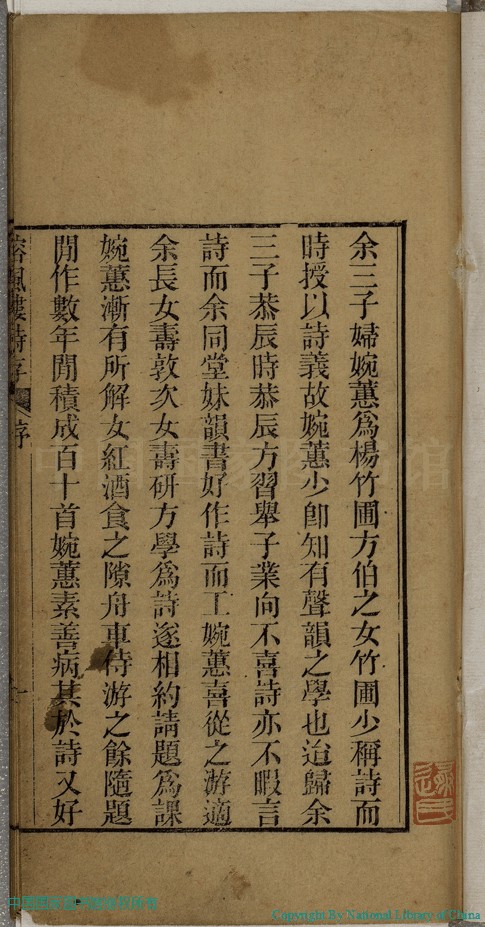 余三子婦婉蕙爲楊竹圃方伯之女竹圃少稱詩而
時授以詩義故婉蕙少卽知有聲韻之學也迨歸余
三子恭辰時恭辰方習舉子業向不喜詩亦不暇言
詩而余同堂妹韻書好作詩而工婉蕙喜從之游適
余長女壽敦次女壽研方學爲詩遂相約請題爲課
婉蕙漸有所解女紅酒食之隙舟車侍游之餘隨題
閒作數年閒積成百十首婉蕙素善病其於詩又好
蓉風樓詩存
序
一
Copyright By National Library of China